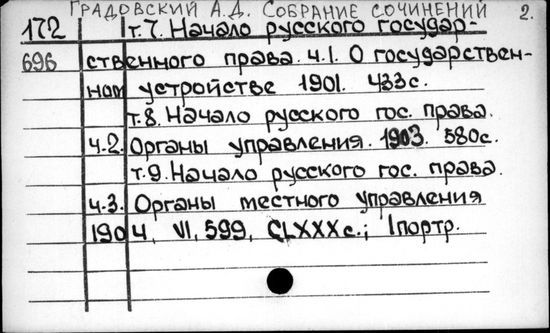 ГРАДОВСКИЙ А.Д. СОБРАНИЕ СОЧИНЕНИЙ 2.
172 т.7. Начало русского государ-
696 ственного права. ч.1. О государствен-
ном устройстве 1901. 433с.
т.8. Начало русского гос. права.
ч.2. Органы управления. 1903. 580с.
т.9. Начало русского гос. права.
ч.3. Органы местного управления
1904, VI, 599, CLXXXс.; 1портр.